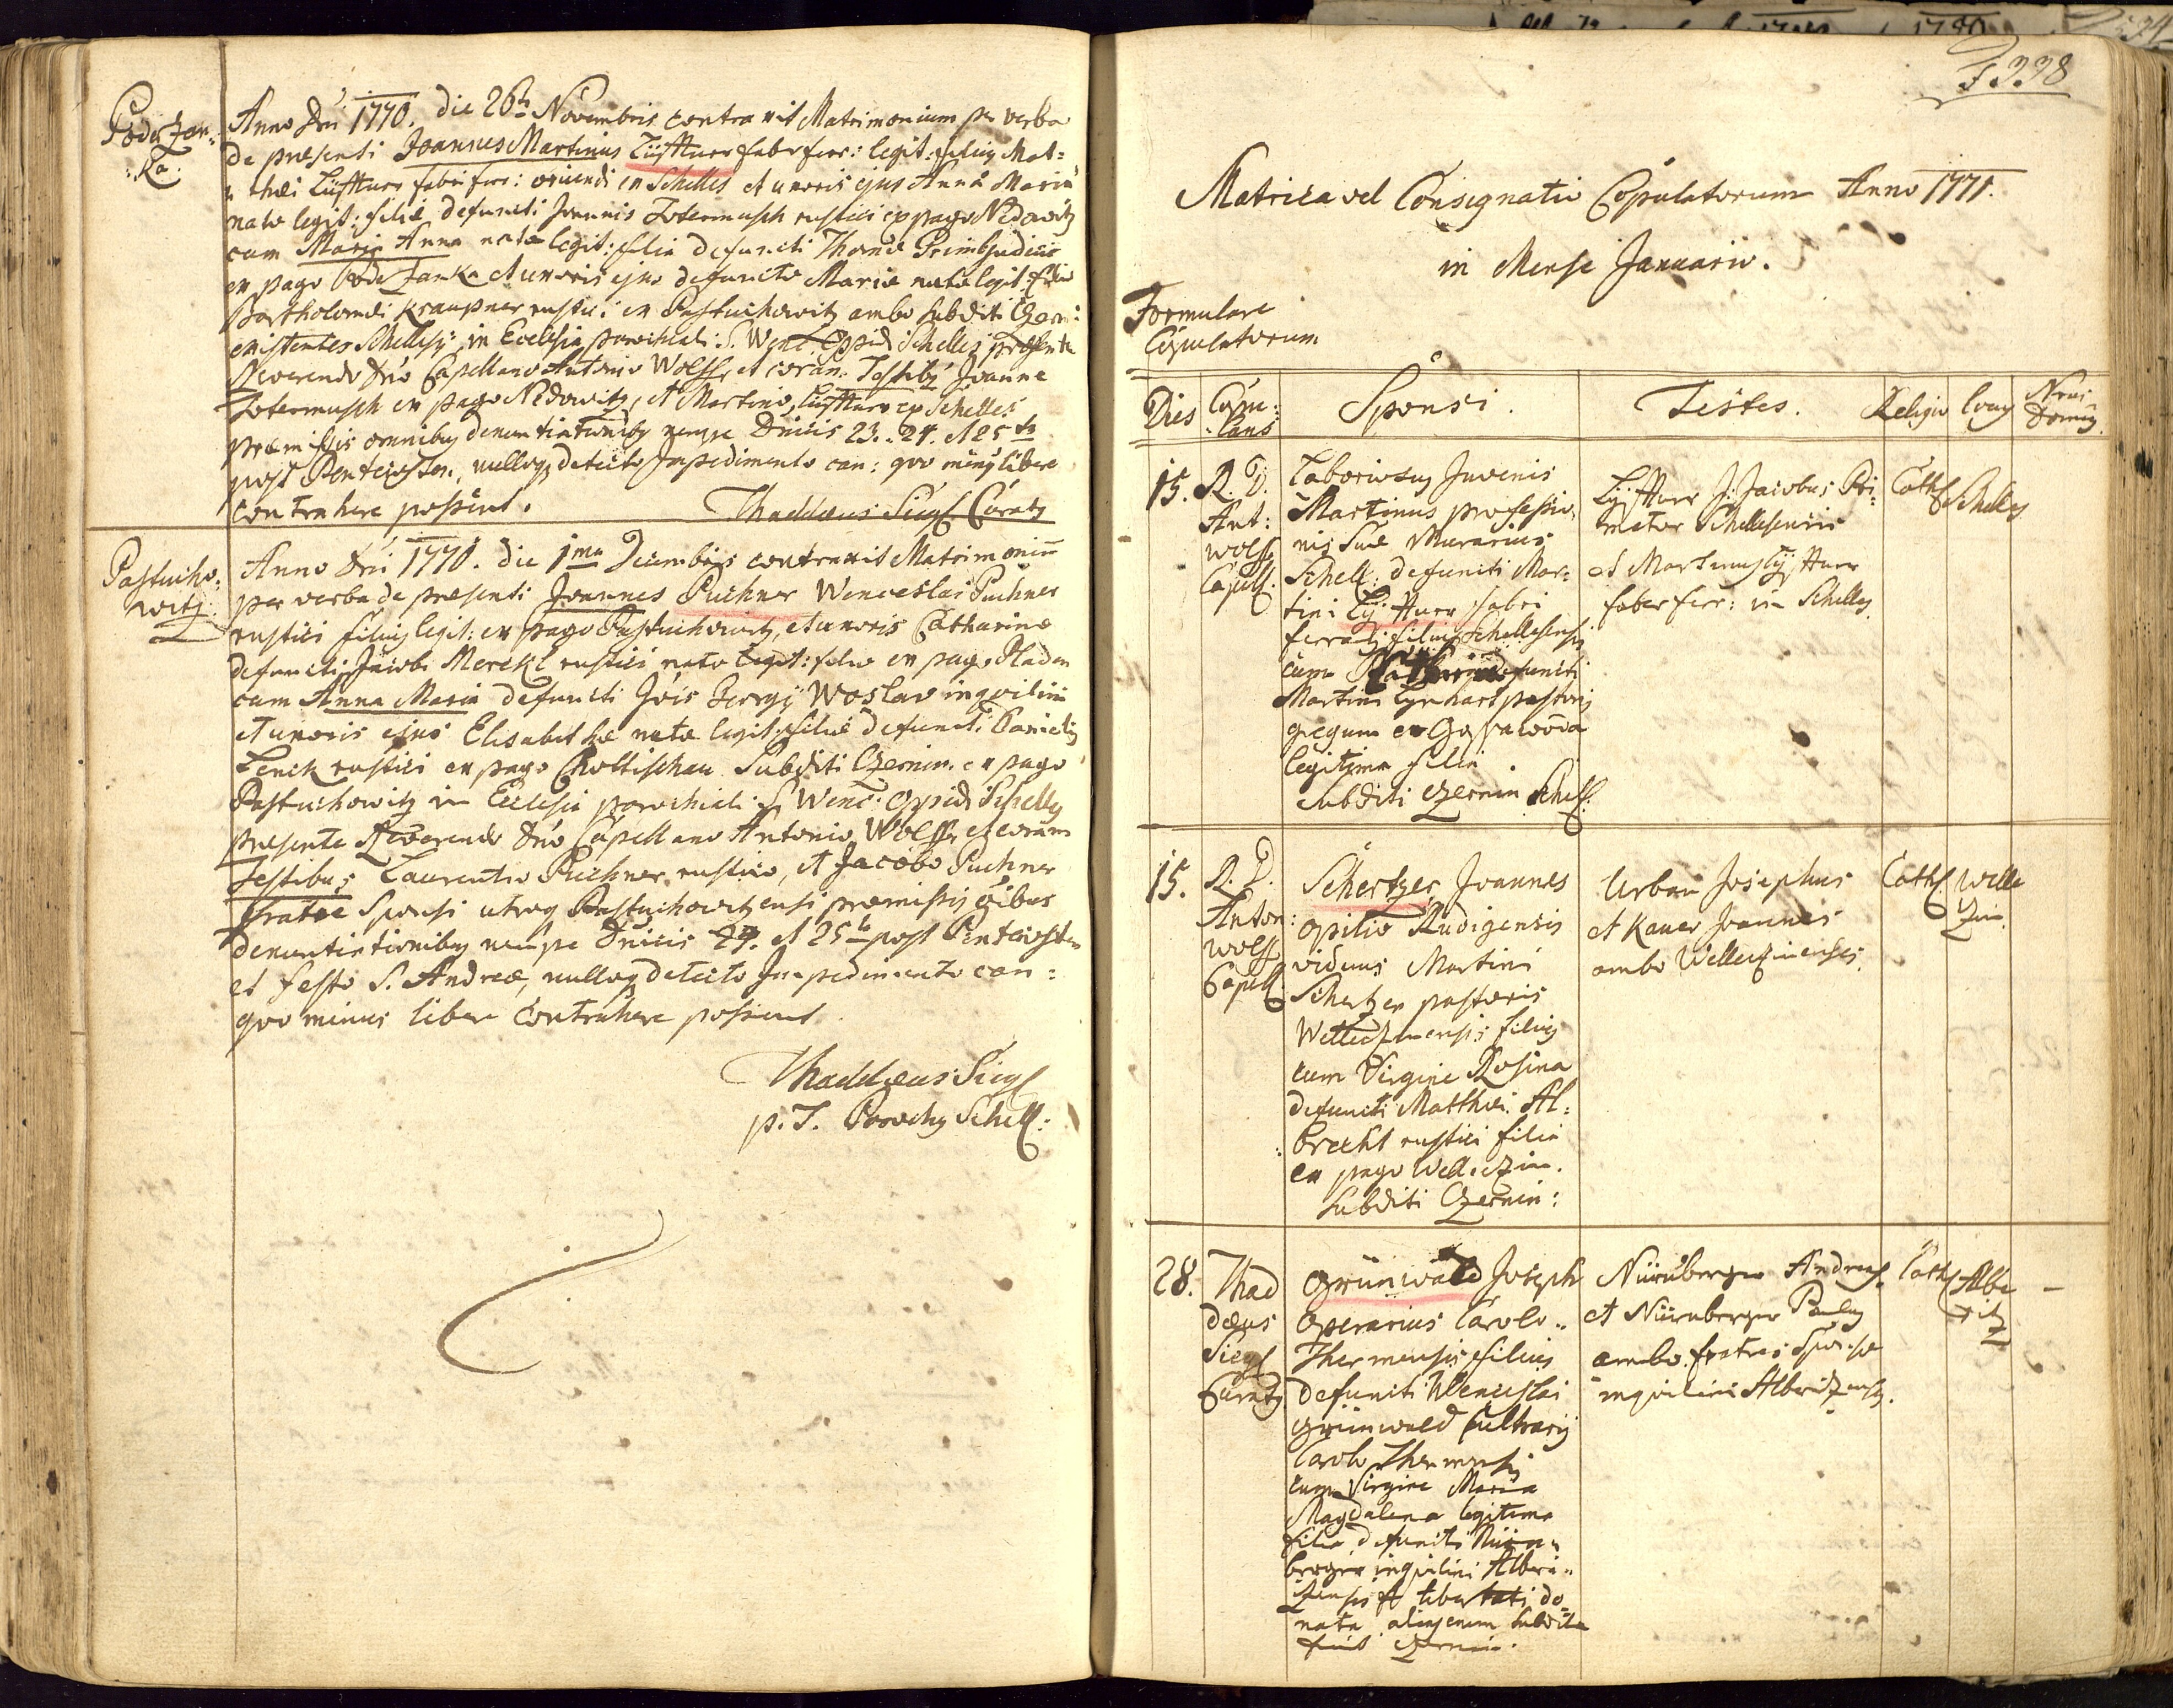 Poderzan:
:ka.
Anno Dni 1770. die 26ta Novembris contraxit Matrimonium per verba
de presenti Joannes Martinus Lüfftner faber ferr: legit: filius Mat=
thei Lüfftner fabri ferr: oriundi ex Schelles et uxoris ejus Anna Maria
nate legit: filie defuncti Joannis Zotermusch rustici ex pago Nedowitz
cum Maria Anna nata legit: filia defuncti Thome
ex pago Poderzanka et uxoris ejus defuncte Marie nate legit: filie
Bartholomei Kraupner rustici ex Pastuchowitz ambo subditi Czern:
existentes Schellesij in Ecclesia parochiali S. Wenc: Oppidi Schelles presente
Reverendo Dno Capellano Antonio Wolff, et coram Testibus Joanne
Zotermusch ex pago Nedowitz, et Martino Lüfftner ex Schelles
premissis omnibus denuntiationibus nempe Dnicis 23. 24. et 25ta
post Pentecosten, nulloque detecto Impedimento can: quo minus libere
contrahere possent.
Thaddæus Siegl Curatus
Pastucho:
witz.
Anno Dni 1770. die 1ma Decembris contraxit Matrimonium
per verba de presenti Joannes Puchner Wenceslai Puchner
rustici filius legit: ex pago Pastuchowitz, et uxoris Catharine
defuncti Jacobi Merckl rustici nate legit: filie ex pago Pladen
cum Anna Maria defuncti Jois Georgij Woslar inquilini
et uxoris ejus Elisabethe nate legit: filie defuncti Danielis
Lenck rustici ex pago Choltischau Subditi Czernin: ex pago
Pastuchowitz in Ecclesia parochiali S. Wenc: Oppidi Schelles
presente Reverendo Dno Capellano Antonio Wolff, et coram
Testibus Laurentio Puchner rustico, et Jacobo Puchner
fratre Sponsi utroque Pastuchowitzensi premissis oibus
denuntiationibus nempe Dnicis 24. et 25ta post Pentecosten
et festo S. Andreæ, nulloque detecto Impedimento can:
quo minus libere Contrahere possent.
Thaddæus Siegl
p. T. Parochus Schell:
338
Matrica vel Consignatio Copulatorum Anno 1771.
in Mense Januario.
Formulare
Copulatorum
Dies
Copu:
lans
Sponsi.
Testes.
Religio
Locus
Nrus
Domus
15.
R. D.
Ant:
Wolff
Capell.
Laboriosus Juvenis
Martinus professio
nis sue Murarius
Schell: defuncti Mar=
tini Lyfftner fabri
ferrarij filius Schellesensis
cum Catharina defuncti
Martini Lynhart pastoris
gregum ex
legitima filia.
Subditi Czernin Schell.
Lyfftner J. Jacobus Pri:
mator Schellesensis
et Martinus Lyfftner
faber ferr: in Schelles.
Cath
Schelles
15.
R. D.
Anton:
Wolff
Capell
Schertzer Joannes
Opilio Rudigensis
viduus Martini
Schertzer pastoris
Welletzinensis filius
cum Virgine Rosina
defuncti Matthei Al:
brecht rustici filia
ex pago Welletzin.
Subditi Czernin:
Urban Josephus
et Kauer Joannes
ambo Welletzinenses.
Cath
Welle
tzin.
28.
Thad
dæus
Siegl
Curatus
Grünwald Joseph
Operarius Carolo=
Thermensis filius
defuncti Wenceslai
Grünwald Cultrarij
Carolo Thermensis
cum Virgine Maria
Magdalena legitima
filia defuncti Nürn=
berger inquilini Alberi=
tzensis et libertati do
nata, aliasenim subdita
fuit Czernin.
Nürnberger Andreas
et Nürnberger Paulus
ambo fratres Sponse
inquilini Alberitzenses.
Cath
Albe
ritz
–